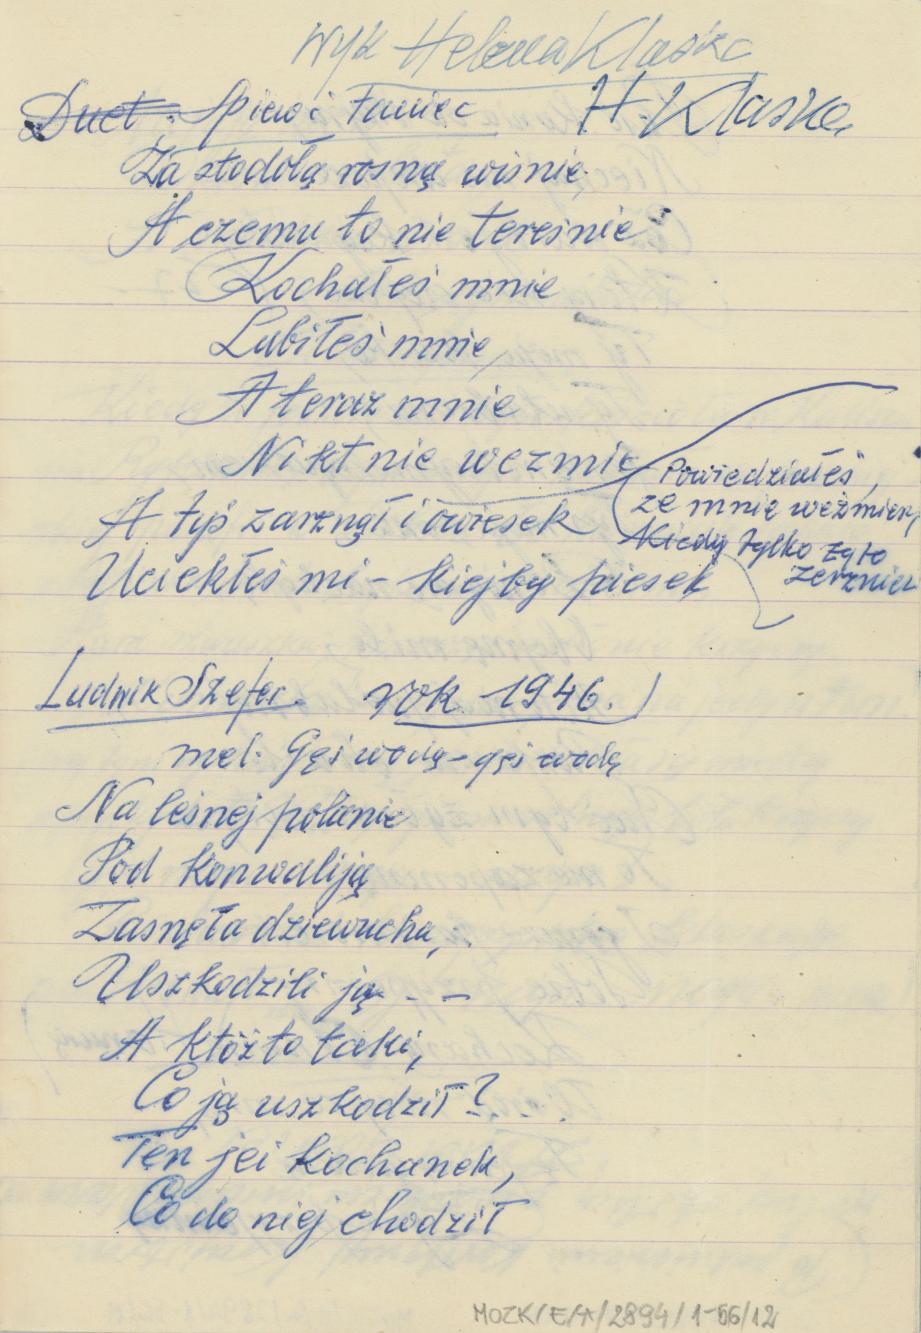 Wyk Helena Klaska
Duet: Śpiew i Taniec H Klaska
Za stodołą rosną wiśnie
A czemu to nie tereśnie
Kochałeś mnie
Lubiłeś mnie
A teraz mnie
Nikt nie weźmie
Powiedziałeś,
że mnie weźmiesz
Kiedy tylko żyto
zerzniesz
A tyś zarznął i owiesek
Uciekłeś mi - kiejby piesek
Ludwik Szefer. rok 1946.
mel. Gęsi wodą - gęsi wodą
Na leśnej polanie
Pod konwaliją
Zasnęła dziewucha,
Uszkodzili ją - -
A któż to taki,
Co ją uszkodził?
Ten jei kochanek,
Co do niej chodził
MOZK/E/A/2894/1-56/12